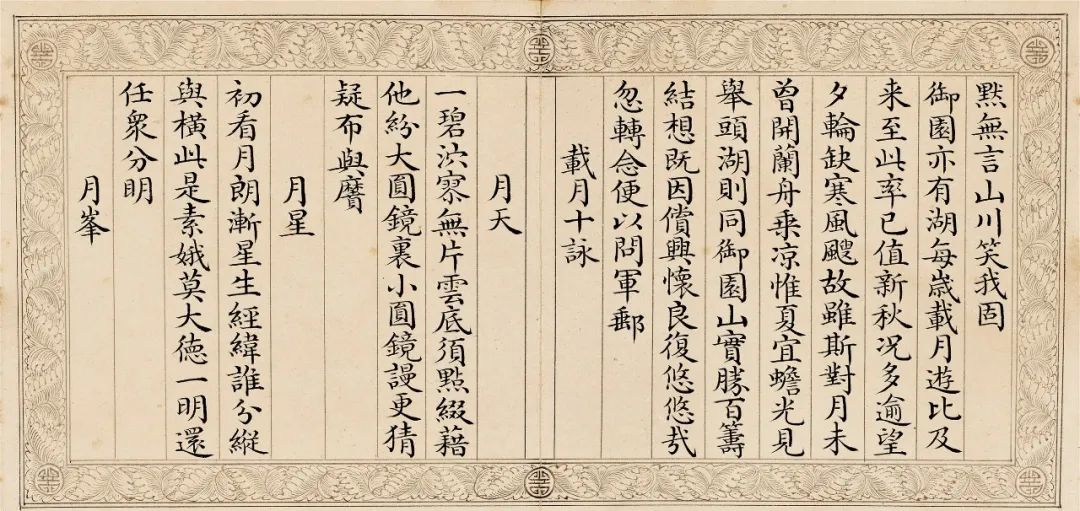 黙無言山川笑我固
御園亦有湖每歲載月遊比及
来至此率已值新秋况多逾望
夕輪缺寒風颼故雖斯對月未
曾開蘭舟乗凉惟夏宜蟾光見
舉頭湖則同御園山實勝百籌
結想既因償興懷良復悠悠㢤
忽轉念便以問軍郵
載月十詠
月天
一碧泬寥無片雲底須點綴藉
他紛大圓鏡裏小圓鏡謾更猜
疑布與黂
月星
初看月朗漸星生經緯誰分縱
與橫此是素娥莫大德一明還
任衆分明
月峯